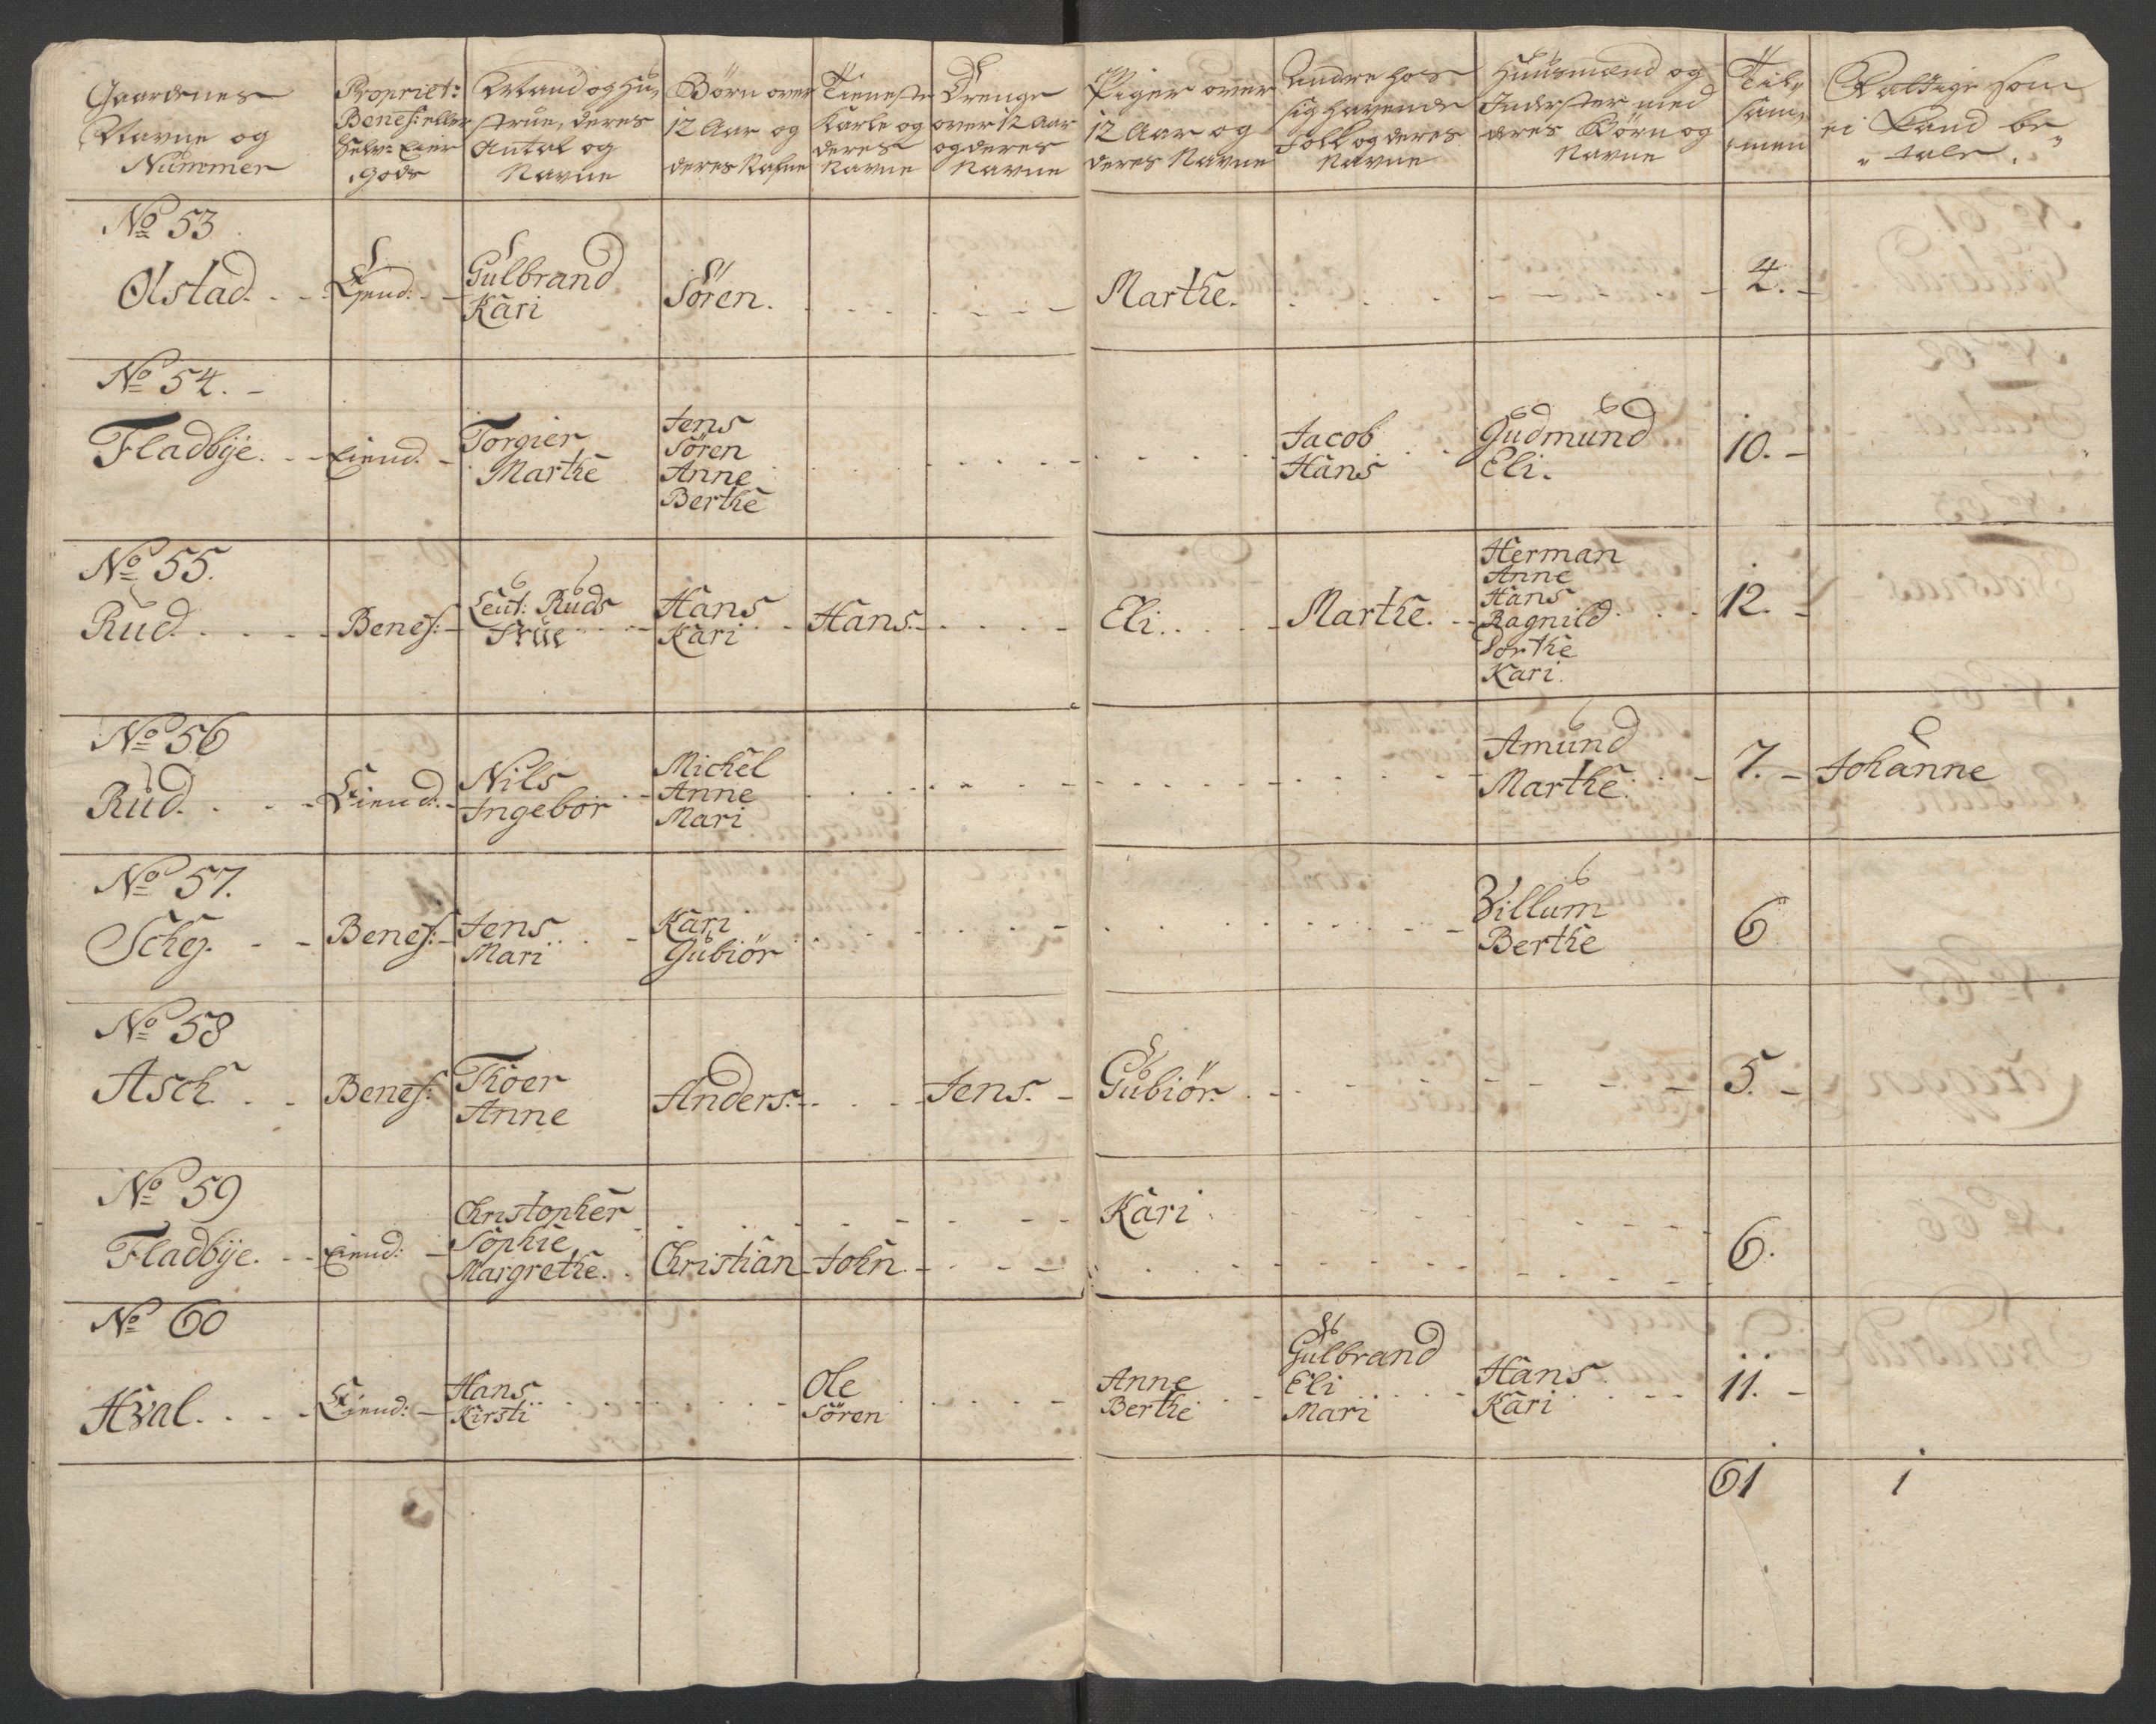 Gaardenes
Navne og
Nummer
Propriet:
Benef: eller
Selv-Eier
Gods
Mand og Hu-
strue, deres
Antal og
Navne
Börn over
12 Aar og
deres Nafne
Tieneste
Karle og
deres
Navne
Drenge
over 12 Aar
og deres
Navne
Piger over
12 Aar og
deres Navne
Andre hos
sig havende
Folk og deres
Navne
Huusmænd og
Inderster med
deres Börn og
Navne
Til-
sam-
men
Fattige som
ei kand be-
tale
No 53
Olstad. Eiend. Gulbrand Sören. Marthe. 4.
Kari
No 54.
Fladbÿe. Eiend. Torgier Jens Jacob Gudmund 10.
Marthe Sören Hans Eli.
Anne
Berthe
No 55.
Rud. Benef: Leut: Ruds Hans Hans. Eli. Marthe. Herman 12.
Frue Kari Anne
Hans
Ragnild
Dorthe
Kari.
No 56
Rud. Eiend. Nils Michel Amund 7. Johanne
Ingebor Anne Marthe.
Mari
No 57.
Schej. Benef: Jens Kari Villum 6
Mari Gubiör Berthe
No 58
Asch Benef: Thoer Anders. Jens. Gubiör. 5.
Anne
No 59
Fladbÿe. Eiend: Christopher Kari 6.
Sophie
Margrethe. Christian John
No 60
Hval. Eiend: Hans Ole Anne Gulbrand Hans 11.
Kirsti Sören Berthe Eli Kari
Mari
61 1